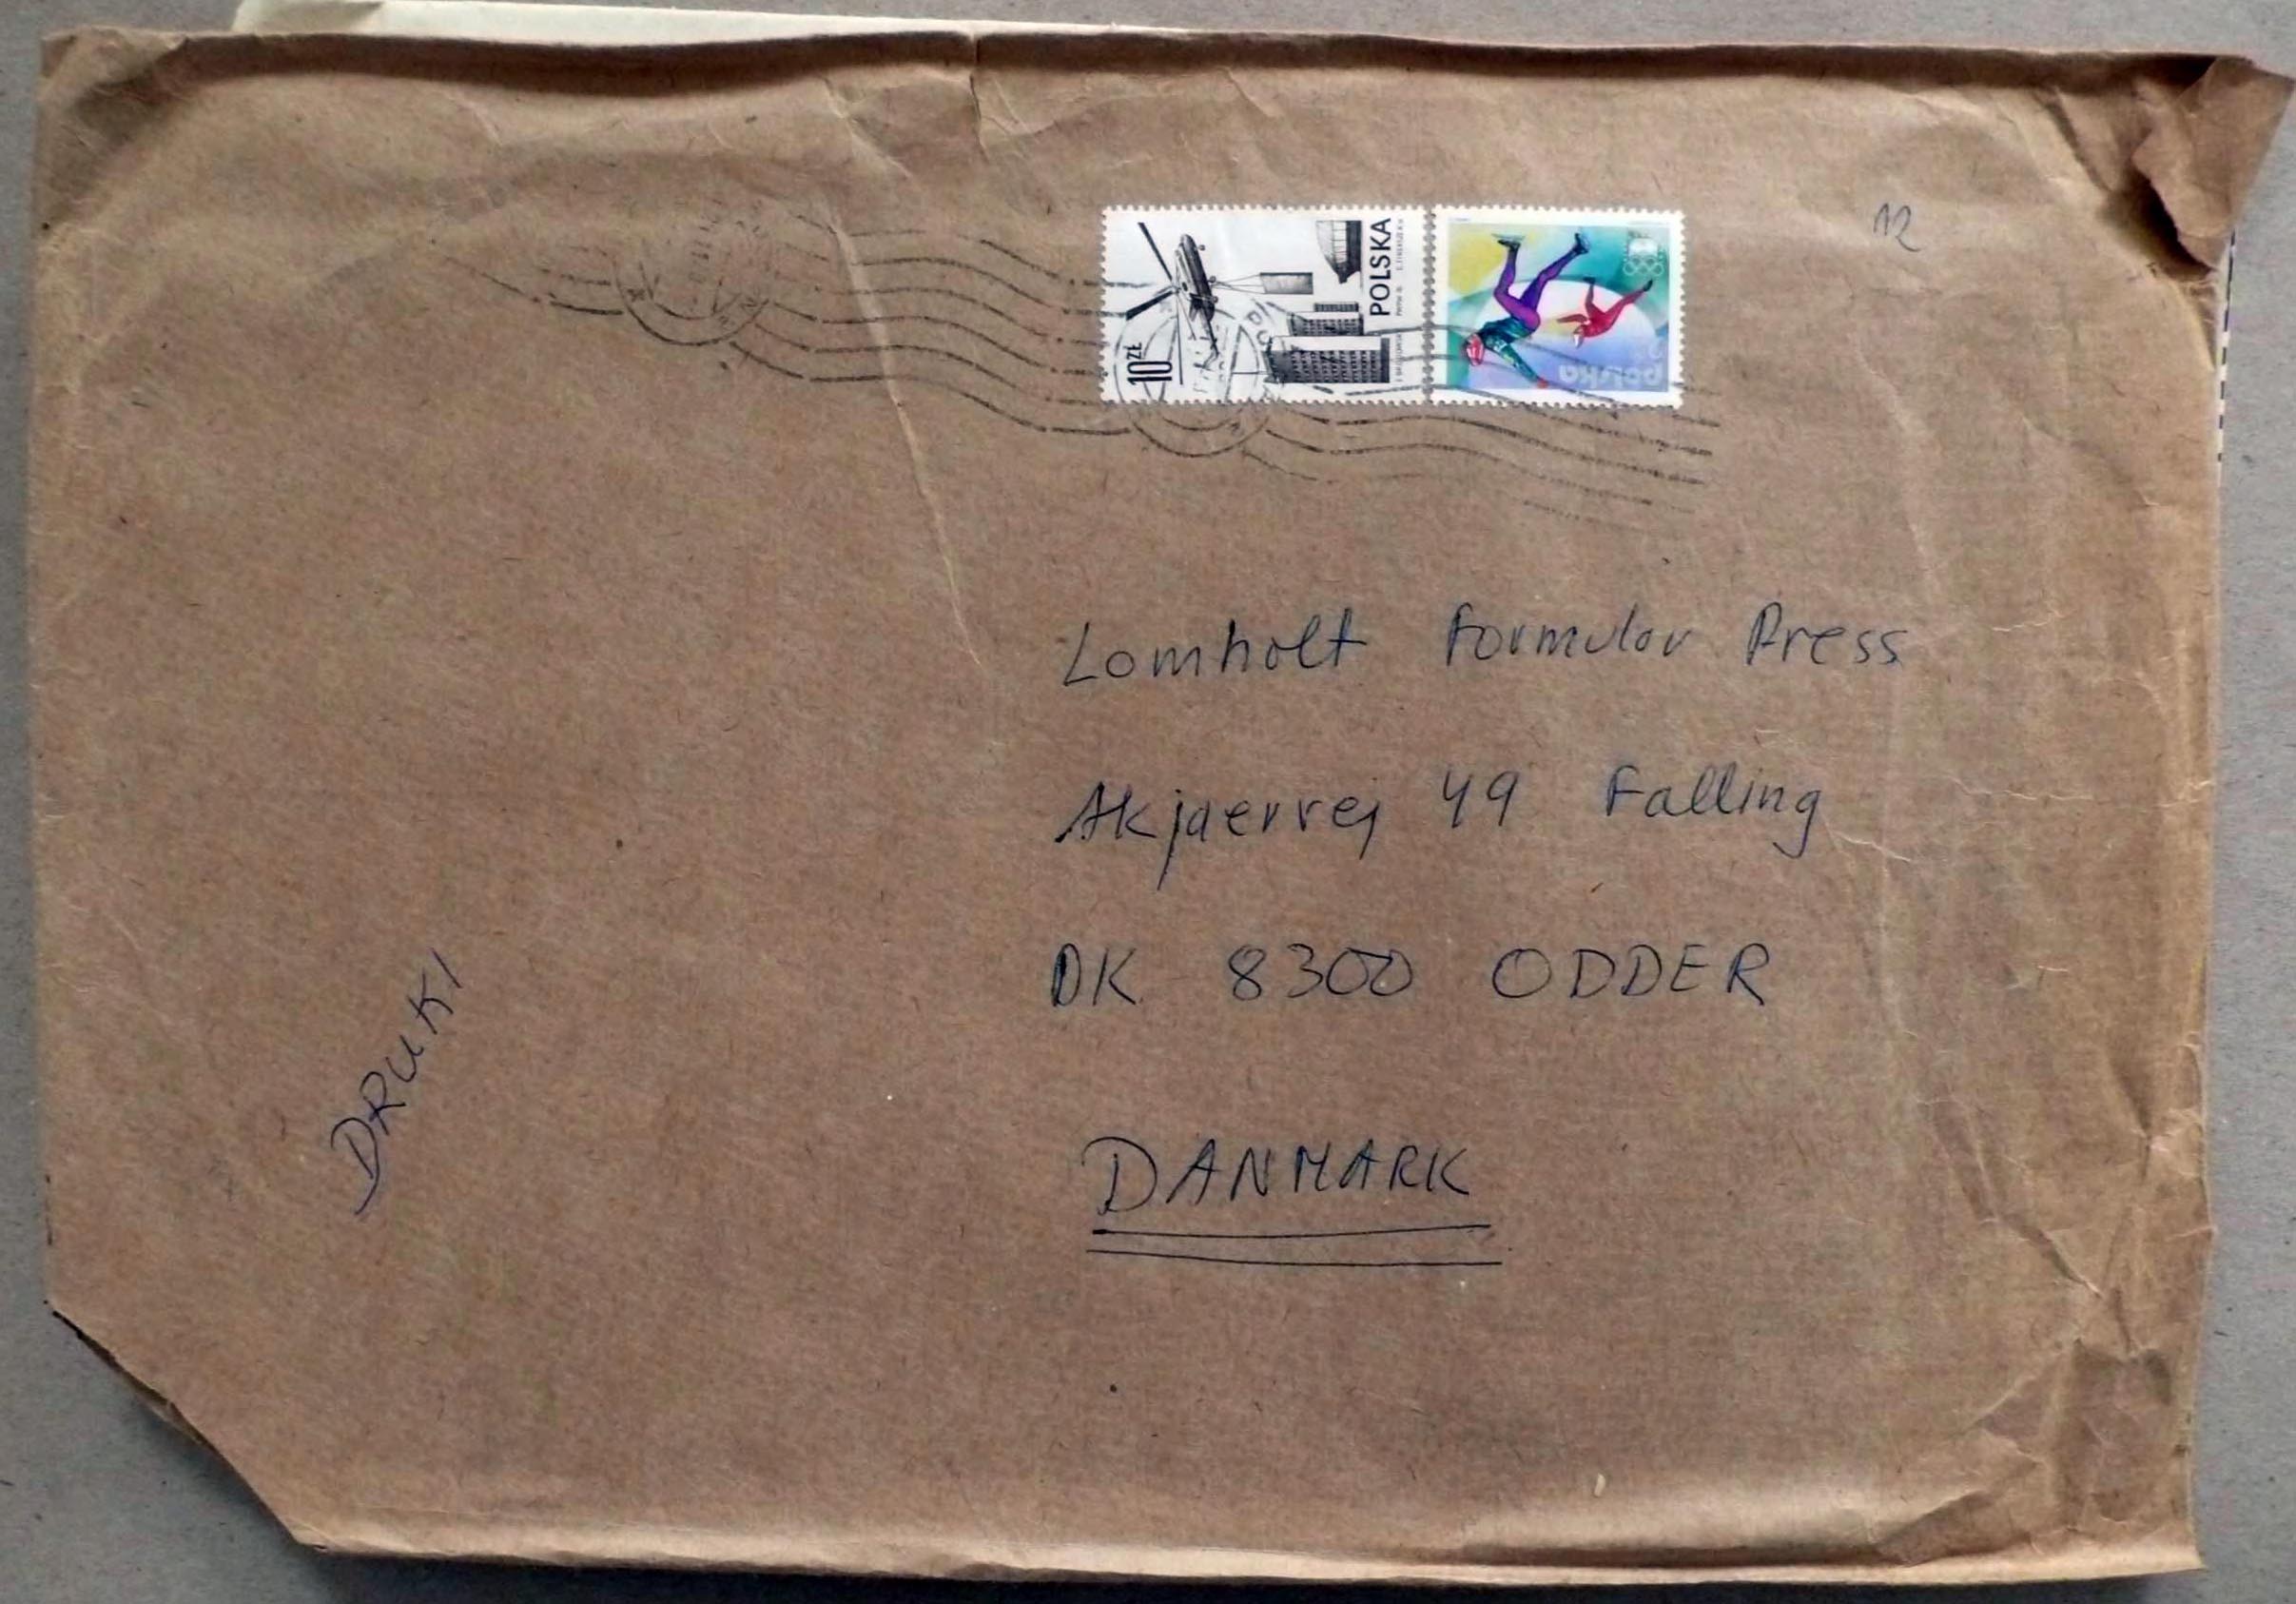 12
10 ZŁ
POLSKA
polska
Lomholt Formular Press
Akjaervej 49 Falling
DK 8300 ODDER
DANMARK
DRUKI